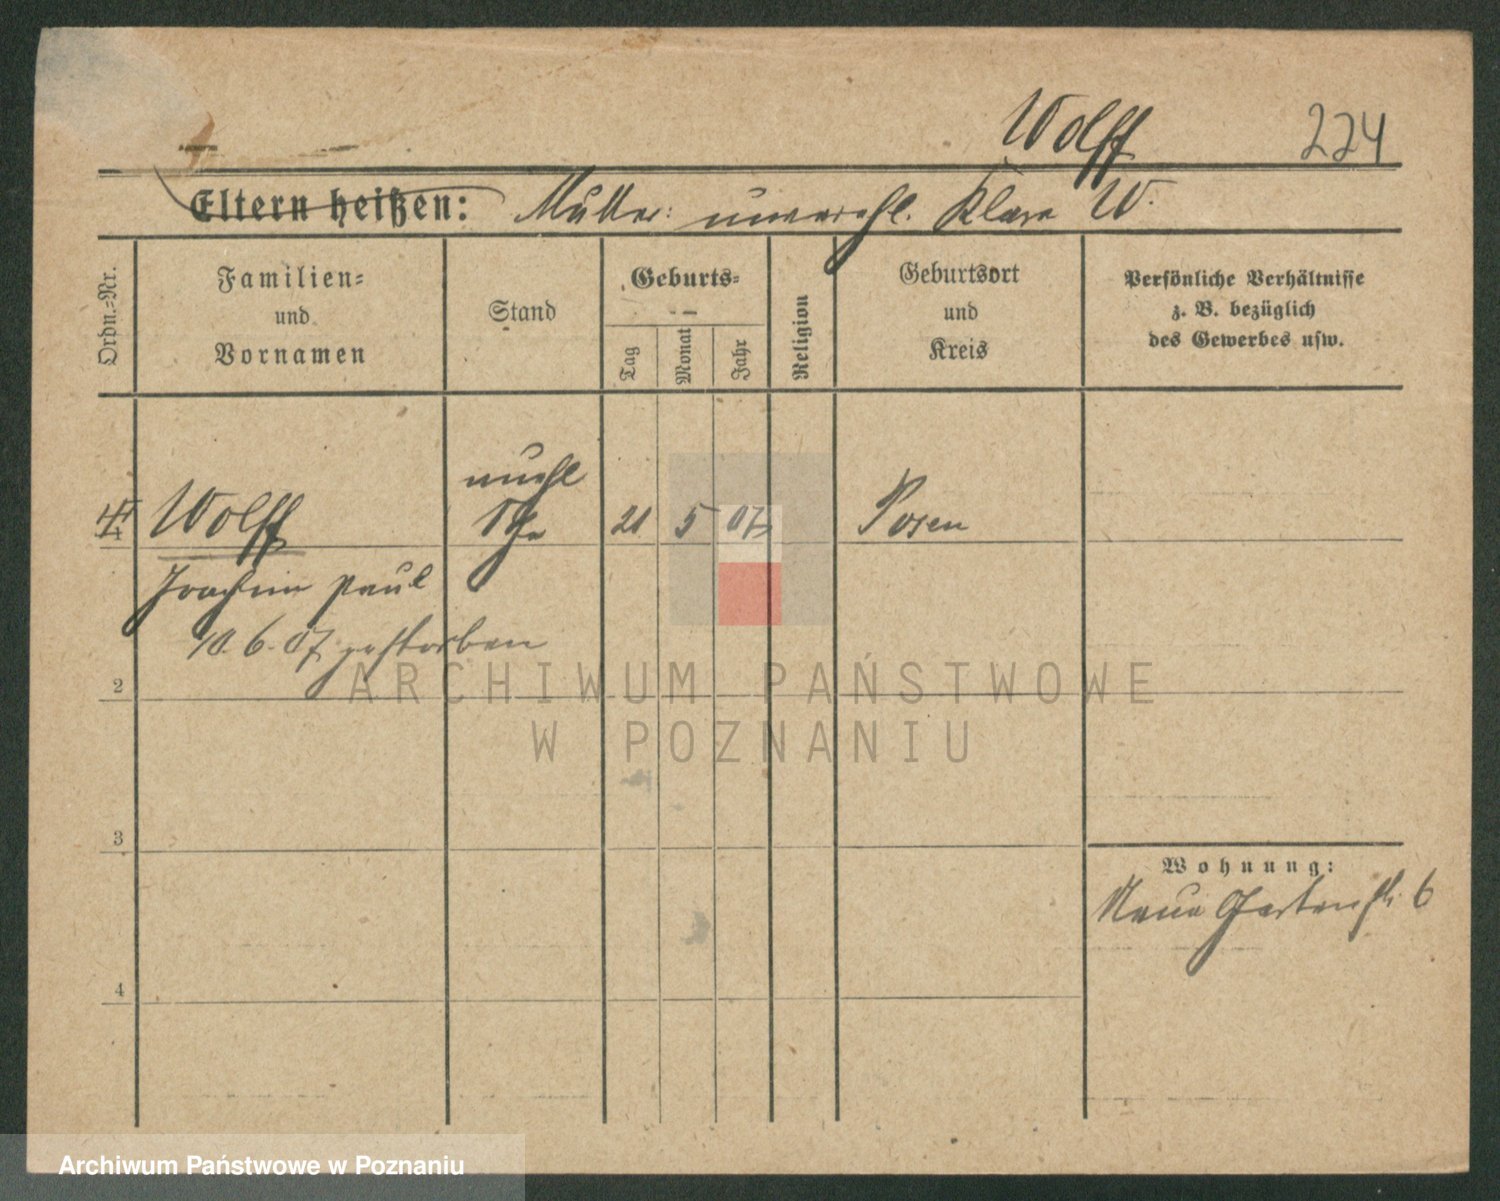 Wolff 224
Eltern heißen: Mutter: unverehl. Klara W.
Ordn.-Nr.
Familien-
und
Vornamen
Stand
Geburts-
Tag
Monat
Jahr
Religion
Geburtsort
und
Kreis
Persönliche Verhältnisse
z. B. bezüglich
des Gewerbes usw.
unehl
Wolff 21 5 07 Posen
Joachim Paul
10. 6. 07 gestorben
2
3
4
Wohnung:
Neue Gartenstr. 6
ARCHIWUM PAŃSTWOWE
W POZNANIU
Archiwum Państwowe w Poznaniu